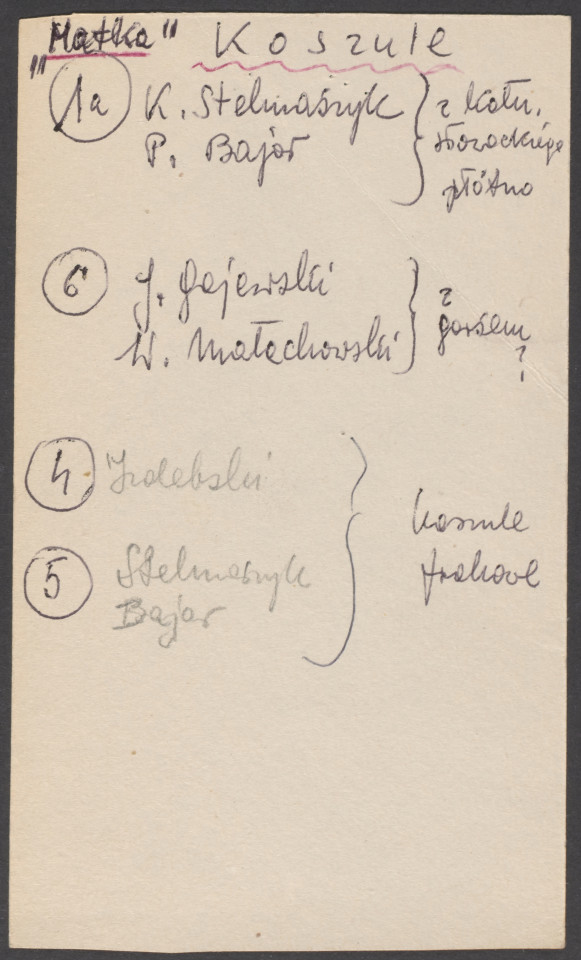 "Matka" Koszule
1a K. Stelmaszyk
P. Bajor
z kołn.
słowackiego
płótno
6 J. Gajewski
W. Małachowski
z
gorsem
?
4 Izdebski
5 Stelmaszyk
Bajor
koszule
frakowe